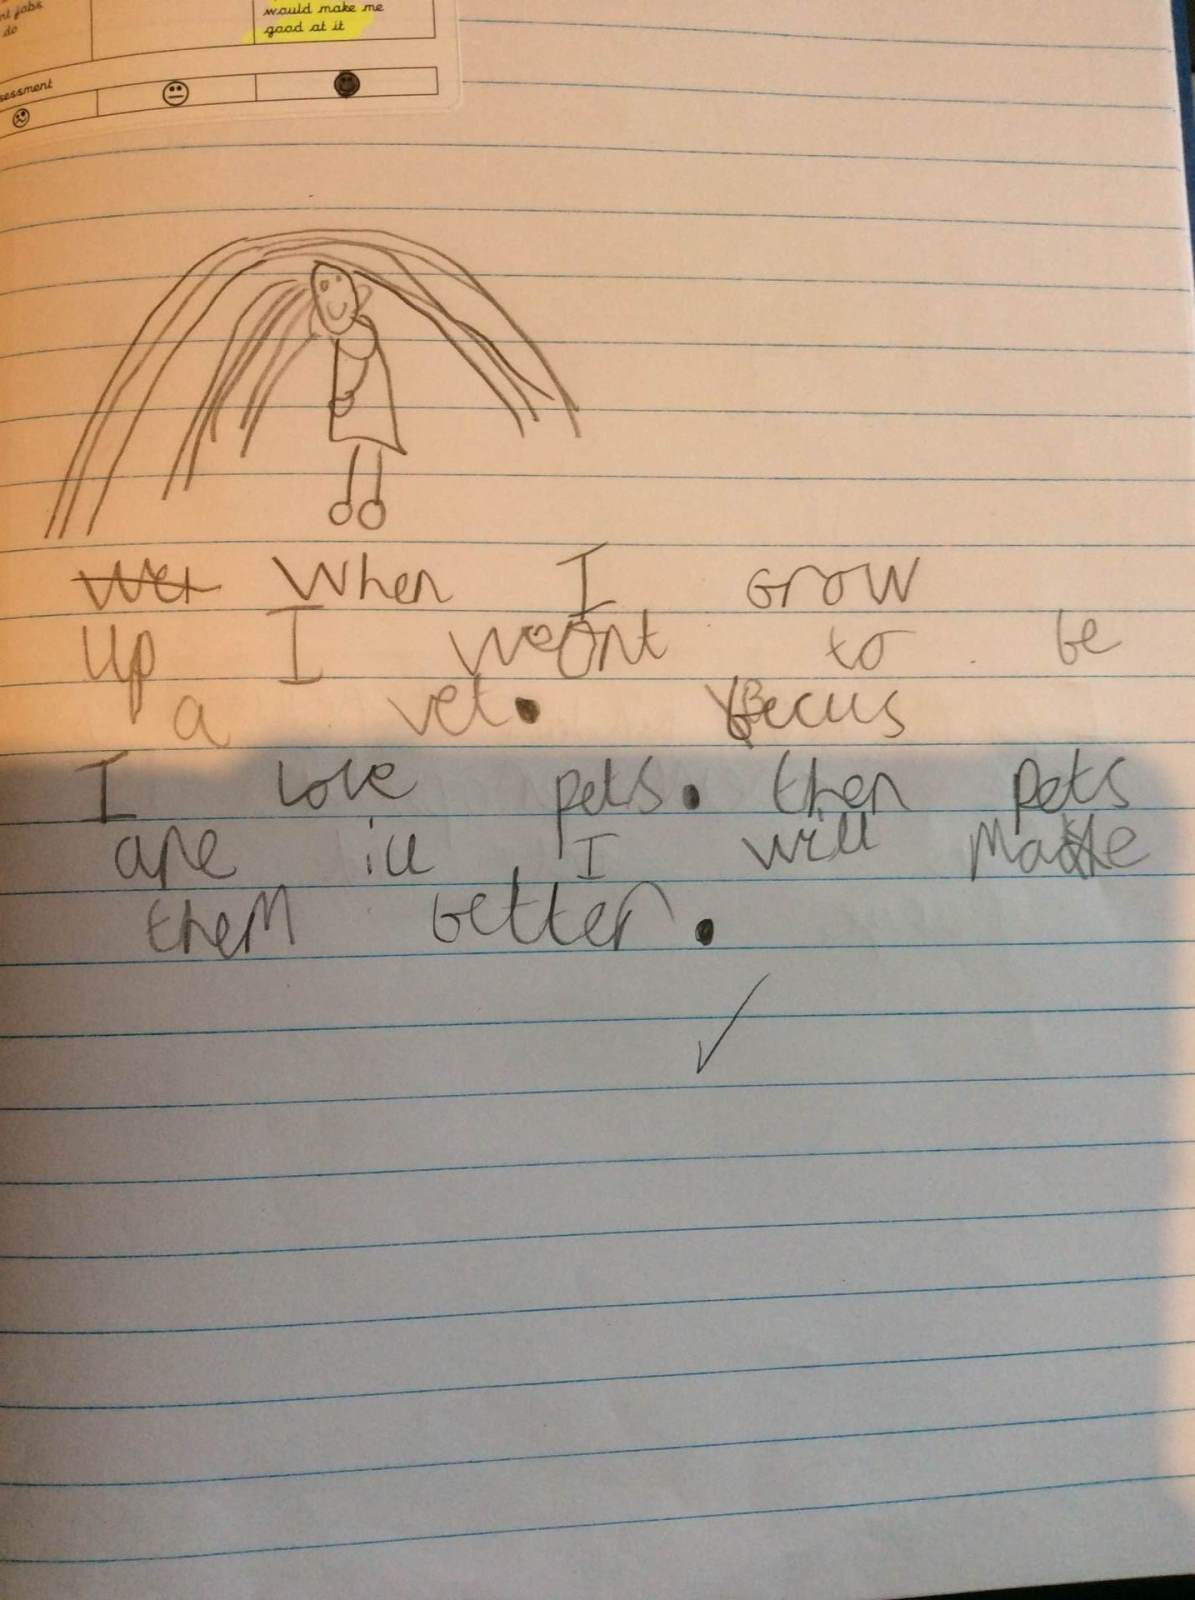 nt jobs
do
would make me
good at it
sessment
When I Grow
Up I wont to be
a vet. Becus
I Love pets. then pets
are ill I will Make
theM Better.